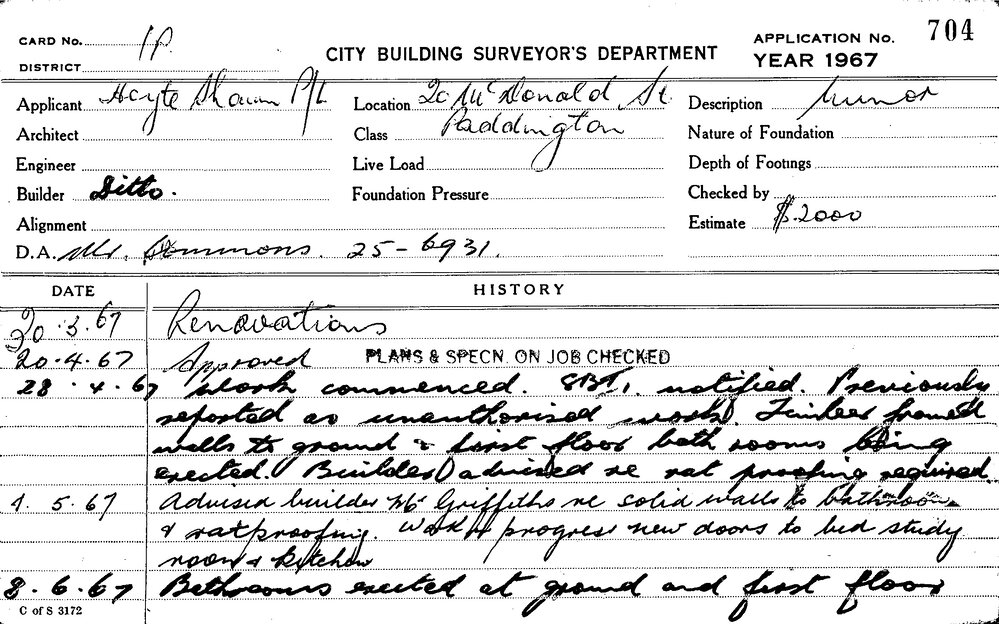 CARD No. 1P. CITY BUILDING SURVEYOR'S DEPARTMENT APPLICATION No. 704
DISTRICT YEAR 1967
Applicant P/L Location 20 McDonald St. Description Minor
Architect Class Paddington Nature of Foundation
Engineer Live Load Depth of Footings
Builder Ditto. Foundation Pressure Checked by
Alignment Estimate $.2000
D.A. Mr. 25-6931.
DATE HISTORY
20.3.67 Renovations
20.4.67 Approved PLANS & SPECN. ON JOB CHECKED
28.4.67 Work commenced. notified. Previously
reported as unauthorised work. Timber framed
walls to ground & first floor bath rooms being
erected. Builder advised re rat proofing required.
4.5.67 Advised builder Mr Griffiths re solid walls to bathroom
& ratproofing. Work in progress new doors to bed study
room & kitchen
8.6.67 Bathrooms erected at ground and first floor
C of S 3172